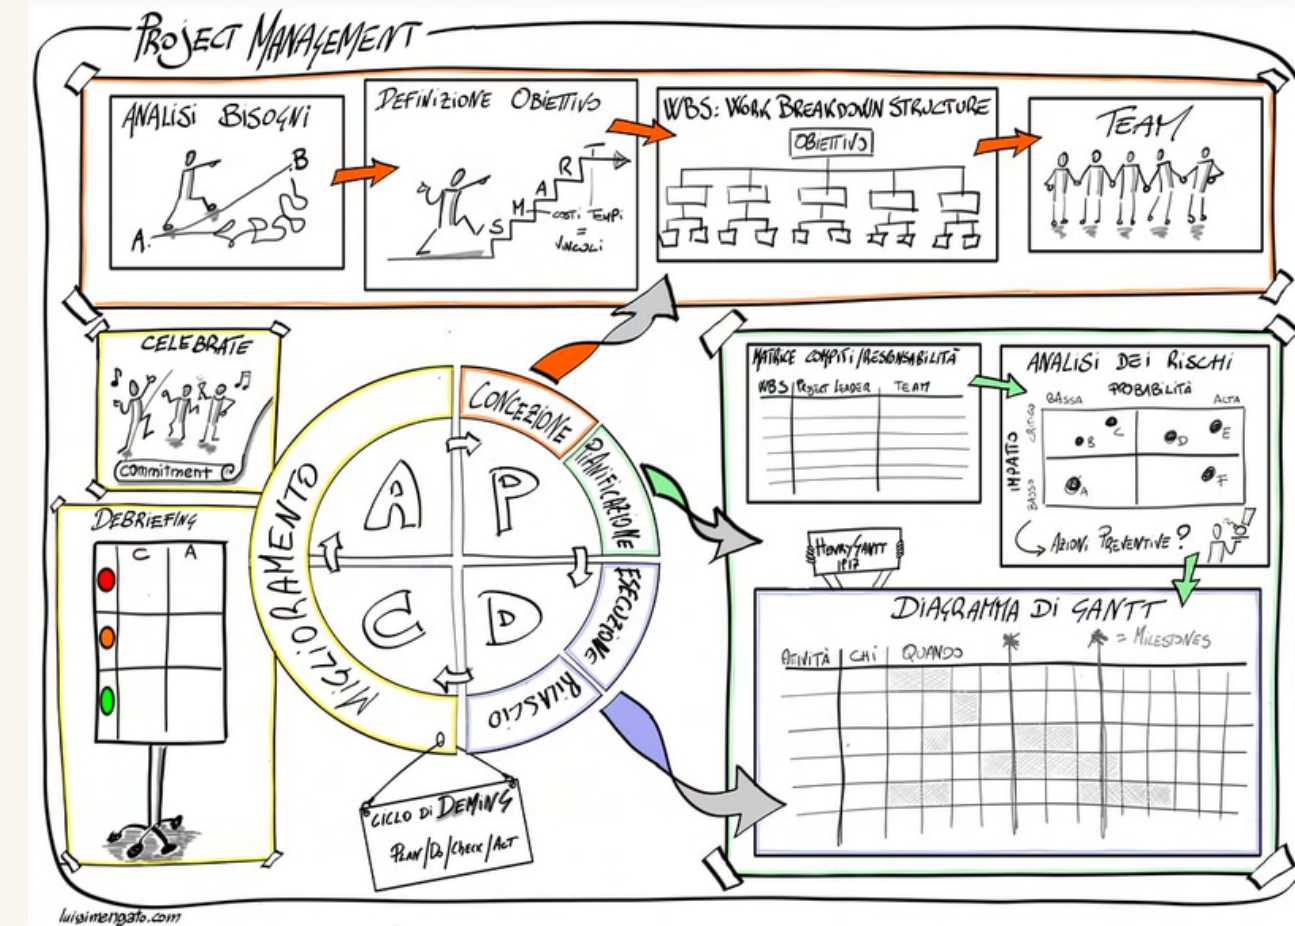 PROJECT MANAGEMENT
ANALISI BISOGNI
A.
B
DEFINIZIONE OBIETTIVO
S
M
A
R
T
COSTI TEMPI
=
VINCOLI
WBS: WORK BREAKDOWN STRUCTURE
OBIETTIVO
TEAM
CELEBRATE
commitment
DEBRIEFING
C A
CONCEZIONE
PIANIFICAZIONE
ESECUZIONE
RILASCIO
MIGLIORAMENTO
A P
C D
CICLO DI DEMING
PLAN/DO/CHECK/ACT
MATRICE COMPITI/RESPONSABILITÀ
WBS PROJECT LEADER TEAM
ANALISI DEI RISCHI
PROBABILITÀ
BASSA ALTA
IMPATTO
CRITICO
BASSO
B
C
D
E
A
F
AZIONI PREVENTIVE?
HENRY GANTT
1917
DIAGRAMMA DI GANTT
= MILESTONES
ATIVITÀ CHI QUANDO
luigimengato.com